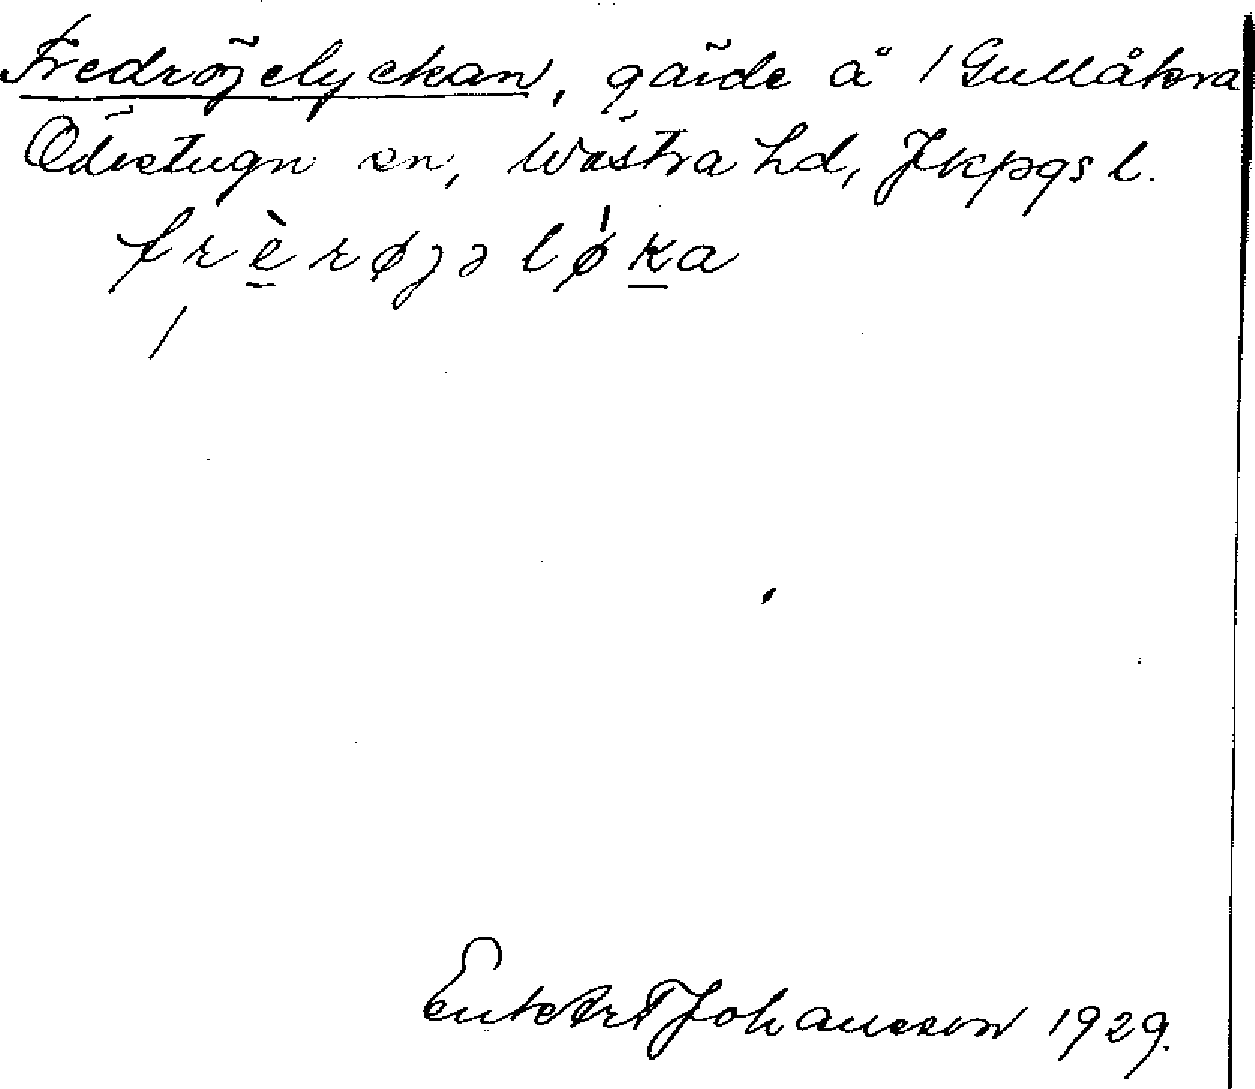 Fredröjelyckan, gärde å 1 Gullåkra
Ödestugu sn, Västra hd, Jkpgs l.
frèrøjəløka
/
Johansson 1929.